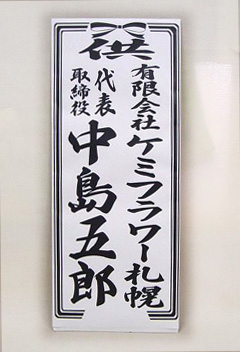 供
有限会社ケミフラワー札幌
代表取締役
中島五郎